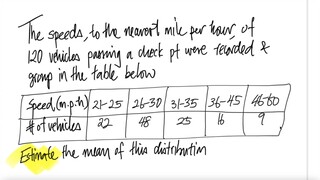 The speeds, to the nearest mile per hour, of
120 vehicles passing a check pt were recorded &
group in the table below
Speed (m.p.h) 21-25 26-30 31-35 36-45 46-60
# of vehicles 22 48 25 16 9
Estimate the mean of this distribution